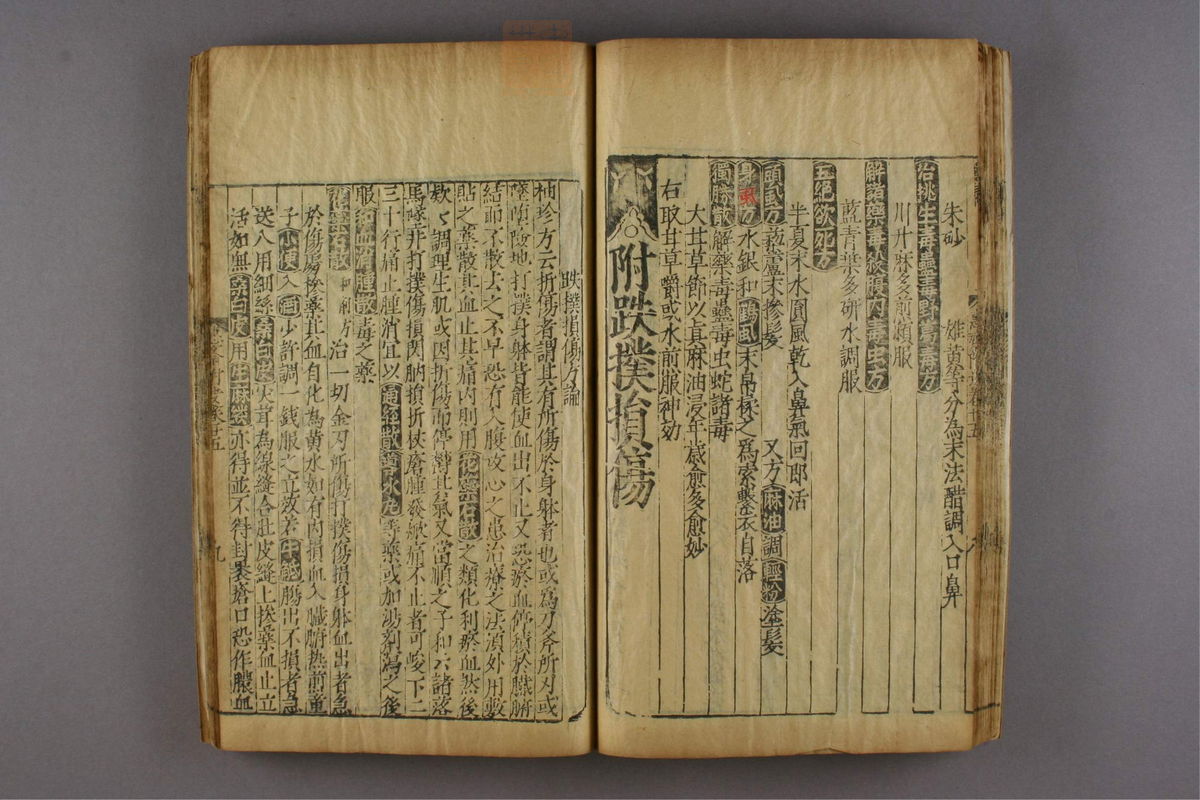 朱砂 雄黄等分為末法醋調入口鼻
治挑生毒蠱毒野葛毒方
川升麻多煎頻服
解藥毒發陽內毒虫方
藍青葉多研水調服
五絕欲死方
半夏末水圓風乾入鼻氣回即活
頭虱方 藜蘆末摻髮 又方麻油調輕粉塗髮
身虱方 水銀和 末帛褁之為索繫衣自落
獨勝散 解藥毒蠱毒虫蛇諸毒
大甘草節以真麻油浸年歲愈多愈妙
右取甘草嚼或水煎服神効
附跌撲損傷
跌撲損傷方論
袖珍方云折傷者謂其有所傷於身躰者也或為刀斧所刃或
墜墮險地打撲身躰皆能使血出不止又恐瘀血停積於臟腑
結而不散去之不早恐有入腹攻心之患治療之法湏外用敷
貼之藥散其血止其痛內則用花蘂石散之類化利瘀血然後
欵欵調理生肌或因折傷而停欝其氣又當順之子和云諸落
馬墜井打撲傷損閃肭損折杖瘡腫發焮痛不止者可峻下二
三十行痛止腫消宜以通經散導水丸等藥或加湯劑瀉之後
服和血消腫散毒之藥
花蘂石散 和劑方 治一切金刃所傷打撲傷損身躰血出者急
於傷處摻藥其血自化為黃水如有內損血入臟腑熱煎童
子小便入酒少許調一錢服之立效若牛觝腸出不損者急
送入用細絲桑白皮尖茸為線縫合肚皮縫上摻藥血止立
活如無桑白皮用生麻縷亦得並不得封褁瘡口恐作膿血